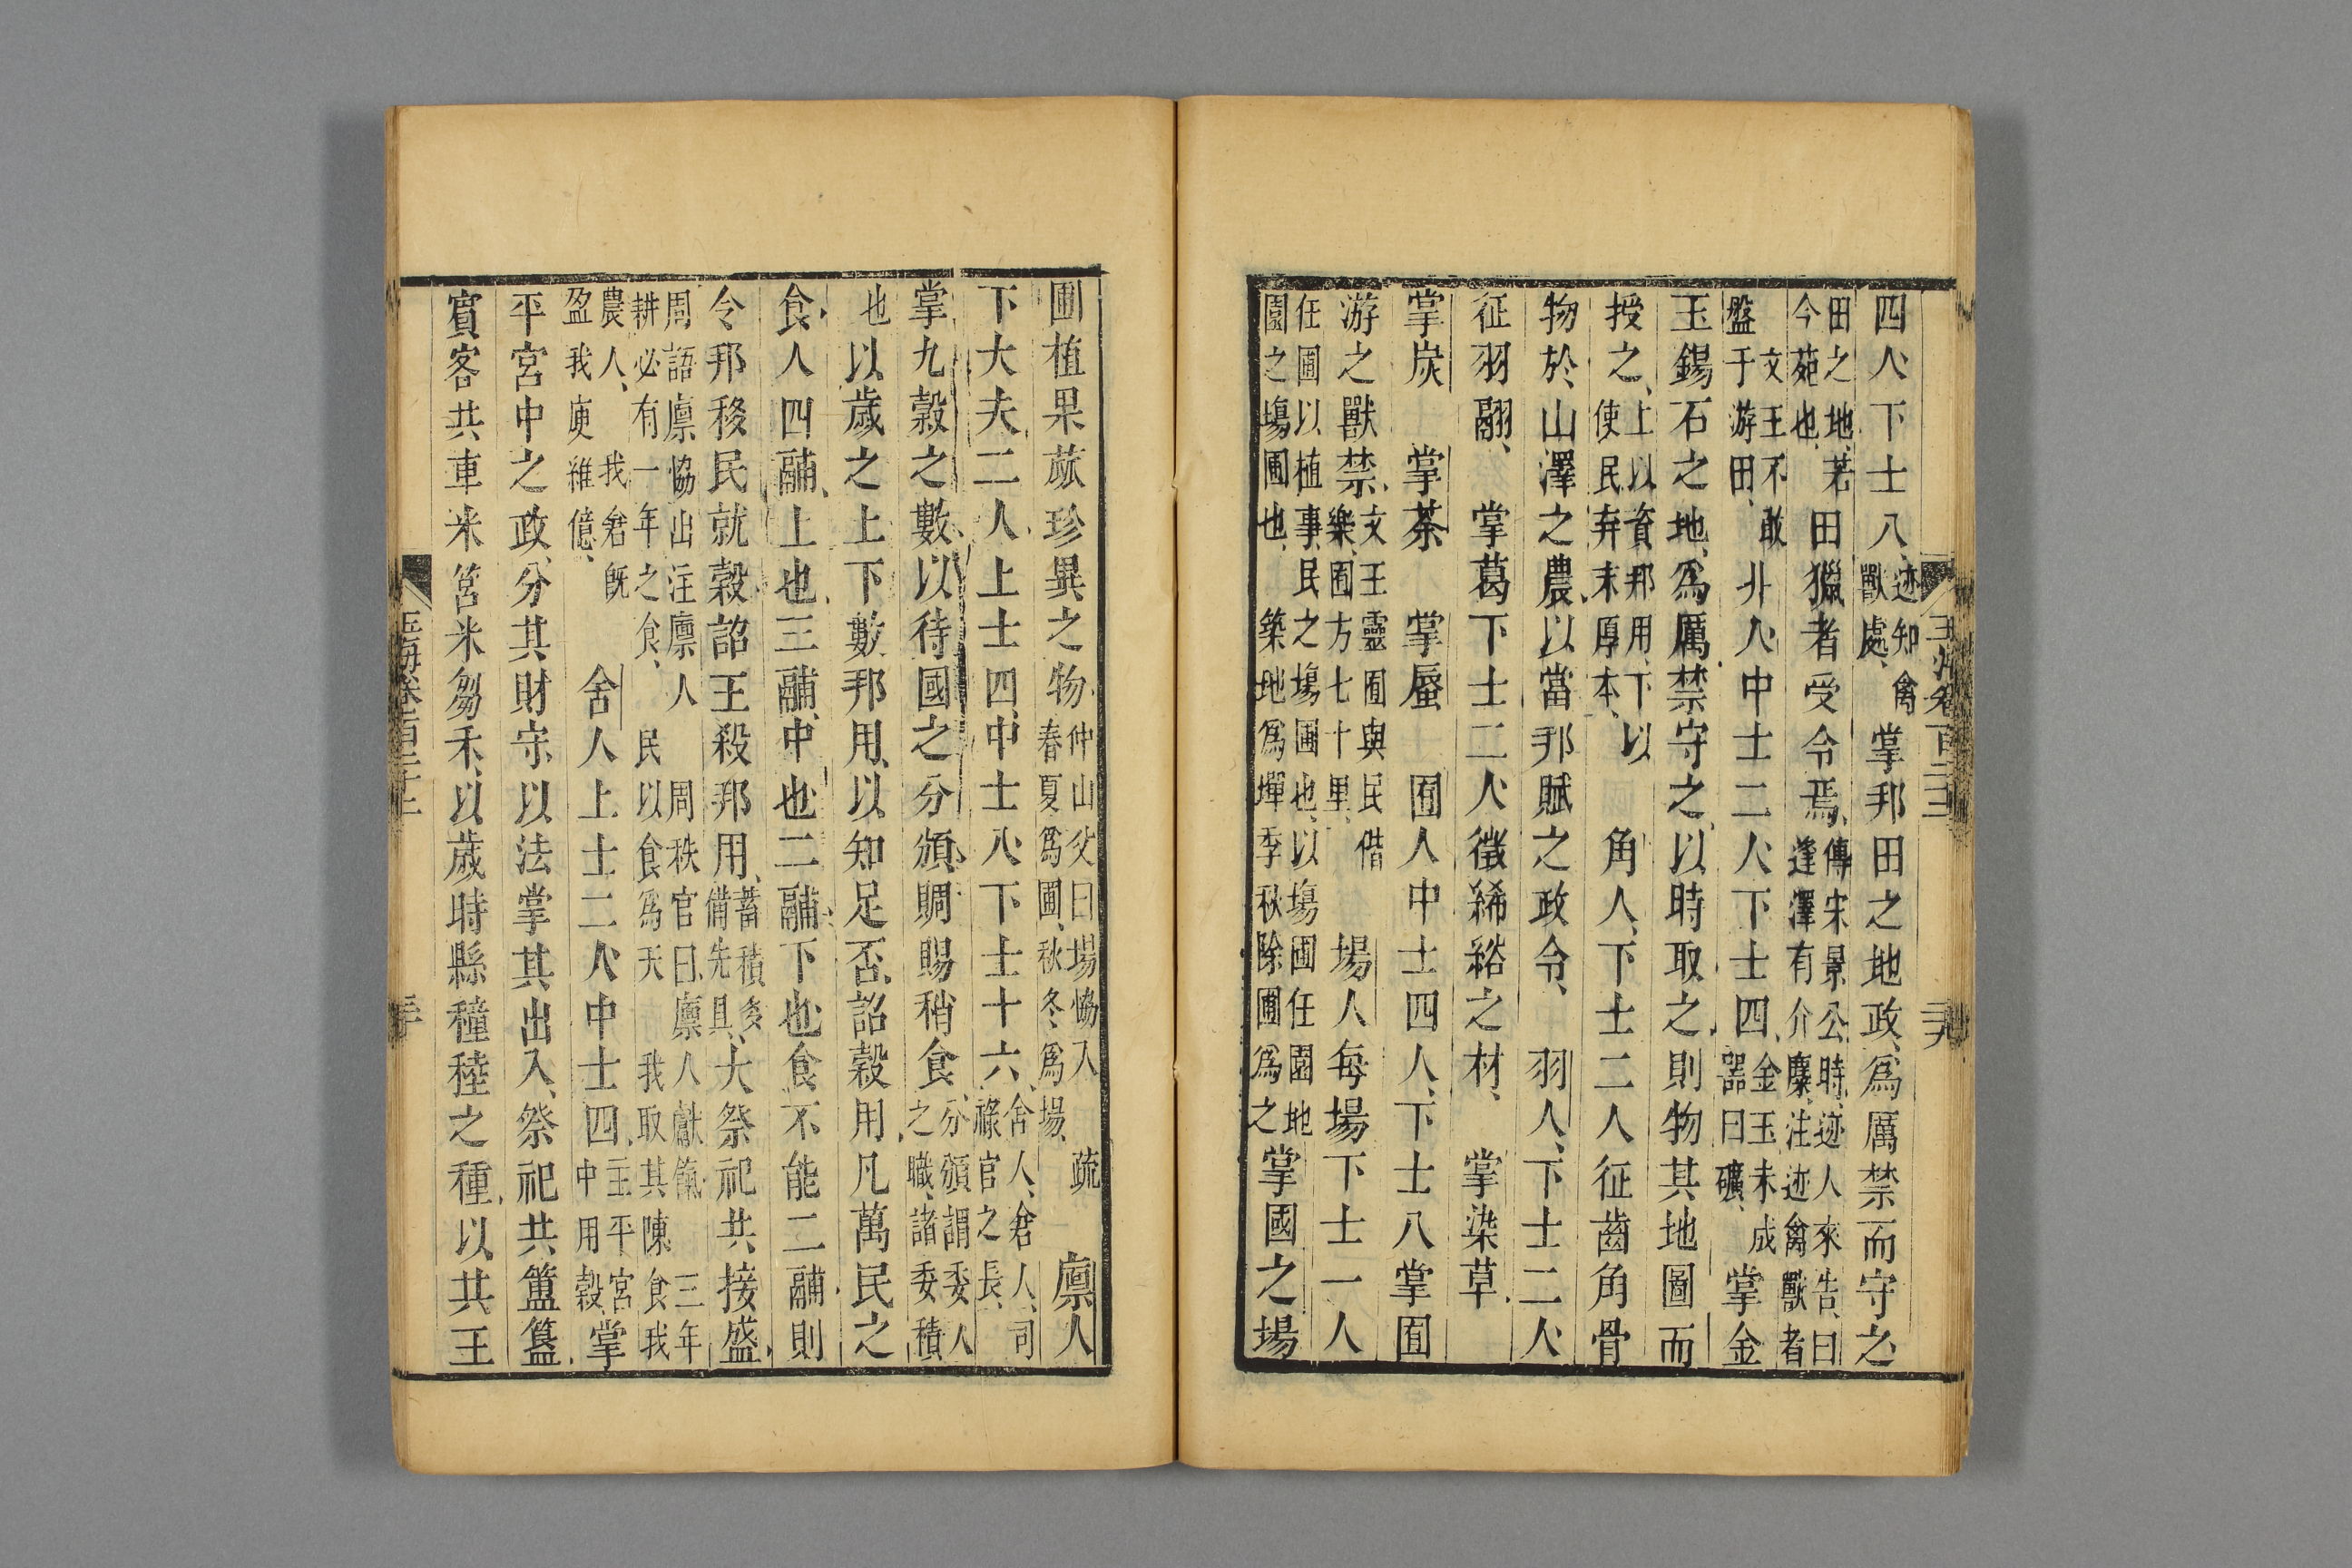 四人下士八迹知禽獸處掌邦田之地政爲厲禁而守之
田之地若今苑也田獵者受令焉傳宋景公時迹人來告曰逢澤有介麋注迹禽獸者
文王不敢盤于游田卝人中士二人下士四金玉未成器曰礦掌金
玉錫石之地爲厲禁守之以時取之則物其地圖而
授之上以資邦用下以使民弃末厚本角人下士二人征齒角骨
物於山澤之農以當邦賦之政令羽人下士二人
征羽翮掌葛下士二人徵絺綌之材掌染草
掌炭掌荼掌蜃囿人中士四人下士八掌囿
游之獸禁文王靈囿與民偕樂囿方七十里場人每場下士一人
任圃以植事民之場圃也以場圃任園地園之場圃也築地爲墠季秋除圃爲之掌國之場
圃植果蓏珍異之物仲山父曰場恊入春夏爲圃秋冬爲場疏廪人
下大夫二人上士四中士八下士十六舍人倉人司祿官之長
掌九穀之數以待國之分頒賙賜稍食分頒謂委人之職諸委積
也以歲之上下數邦用以知足否詔穀用凡萬民之
食人四鬴上也三鬴中也二鬴下也食不能二鬴則
令邦移民就穀詔王殺邦用蓄積多備先具大祭祀共接盛
周語廪恊出注廪人耕必有一年之食民以食爲天周秩官曰廪人獻餼我取其陳食我三年
農人我倉旣盈我庾維億舍人上士二人中士四主平宮中用穀掌
平宮中之政分其財守以法掌其出入祭祀共簠簋
賓客共車米筥米芻禾以歲時縣穜稑之種以共王
玉海卷一百二十二
三十